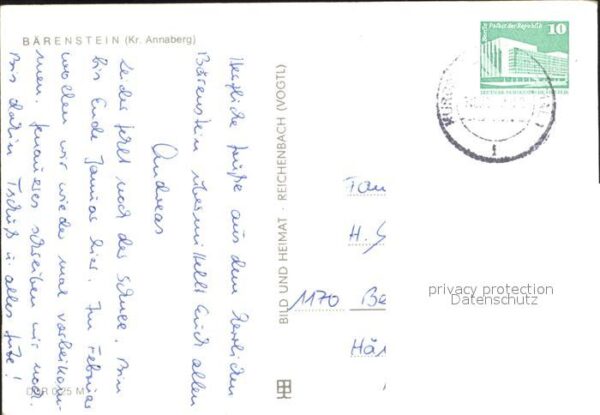 BÄRENSTEIN (Kr. Annaberg)
Herzliche Grüße aus dem herrlichen
Bärenstein übermittelt Euch allen
Andreas
Leider fehlt noch der Schnee. Bin
bis Ende Januar hier. Im Februar
wollen wir wieder mal vorbeikom-
men. Genaueres schreiben wir noch.
Bis dahin Tschüß u. alles Gute!
DDR 0,25 M
BILD UND HEIMAT · REICHENBACH (VOGTL)
Berlin Palast der Republik
10
DEUTSCHE DEMOKRATISCHE REPUBLIK
Fam
H. S
1170 Be
Hä
privacy protection
Datenschutz